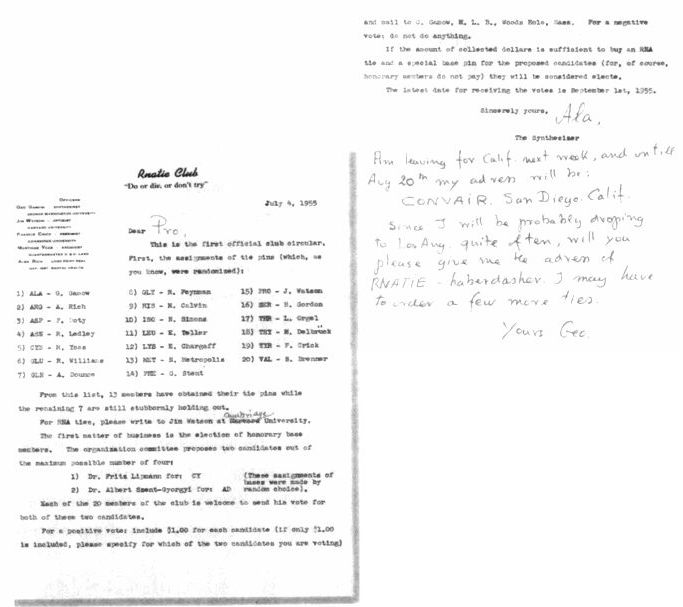 Rnatie Club
"Do or die, or don't try"
July 4, 1955
Dear Pro,
This is the first official club circular.
First, the assignments of tie pins (which, as
you know, were randomized):
1) ALA - G. Gamow
2) ARG - A. Rich
3) ASP - P. Doty
4) ASN - R. Ledley
5) CYS - M. Ycas
6) GLU - R. Williams
7) GLN - A. Dounce
8) GLY - R. Feynman
9) HIS - M. Calvin
10) ISO - N. Simons
11) LEU - E. Teller
12) LYS - E. Chargaff
13) MET - N. Metropolis
14) PHE - G. Stent
15) PRO - J. Watson
16) SER - H. Gordon
17) THR - L. Orgel
18) TRY - M. Delbruck
19) TYR - F. Crick
20) VAL - S. Brenner
From this list, 13 members have obtained their tie pins while
the remaining 7 are still stubbornly holding out.
Cambridge
For RNA ties, please write to Jim Watson at Harvard University.
The first matter of business is the election of honorary base
members. The organization committee proposes two candidates out of
the maximum possible number of four:
1) Dr. Fritz Lipmann for: CY (These assignments of
bases were made by
2) Dr. Albert Szent-Gyorgyi for: AD random choice).
Each of the 20 members of the club is welcome to send his vote for
both of these two candidates.
For a positive vote: include $1.00 for each candidate (if only $1.00
is included, please specify for which of the two candidates you are voting)
and mail to G. Gamow, M. L. B., Woods Hole, Mass. For a negative
vote: do not do anything.
If the amount of collected dollars is sufficient to buy an RNA
tie and a special base pin for the proposed candidates (for, of course,
honorary members do not pay) they will be considered elects.
The latest date for receiving the votes is September 1st, 1955.
Sincerely yours,
Ala,
The Synthesizer
Am leaving for Calif. next week, and until
Aug 20th my adress will be:
CONVAIR. San Diego. Calif.
Since I will be probably dropping
to Los Ang. quite often, will you
please give me the adress of
RNATIE - haberdasher. I may have
to order a few more ties.
Yours Geo.